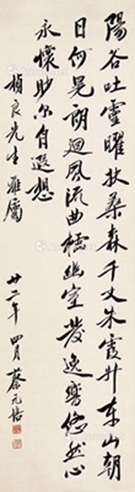 陽谷吐靈曜扶桑森千丈朱霞升東山朝
日何晃朗迴風流曲櫺幽室發逸響悠然心
永懷眇尔自遐想
楨良先生雅屬
廿二年四月蔡元培